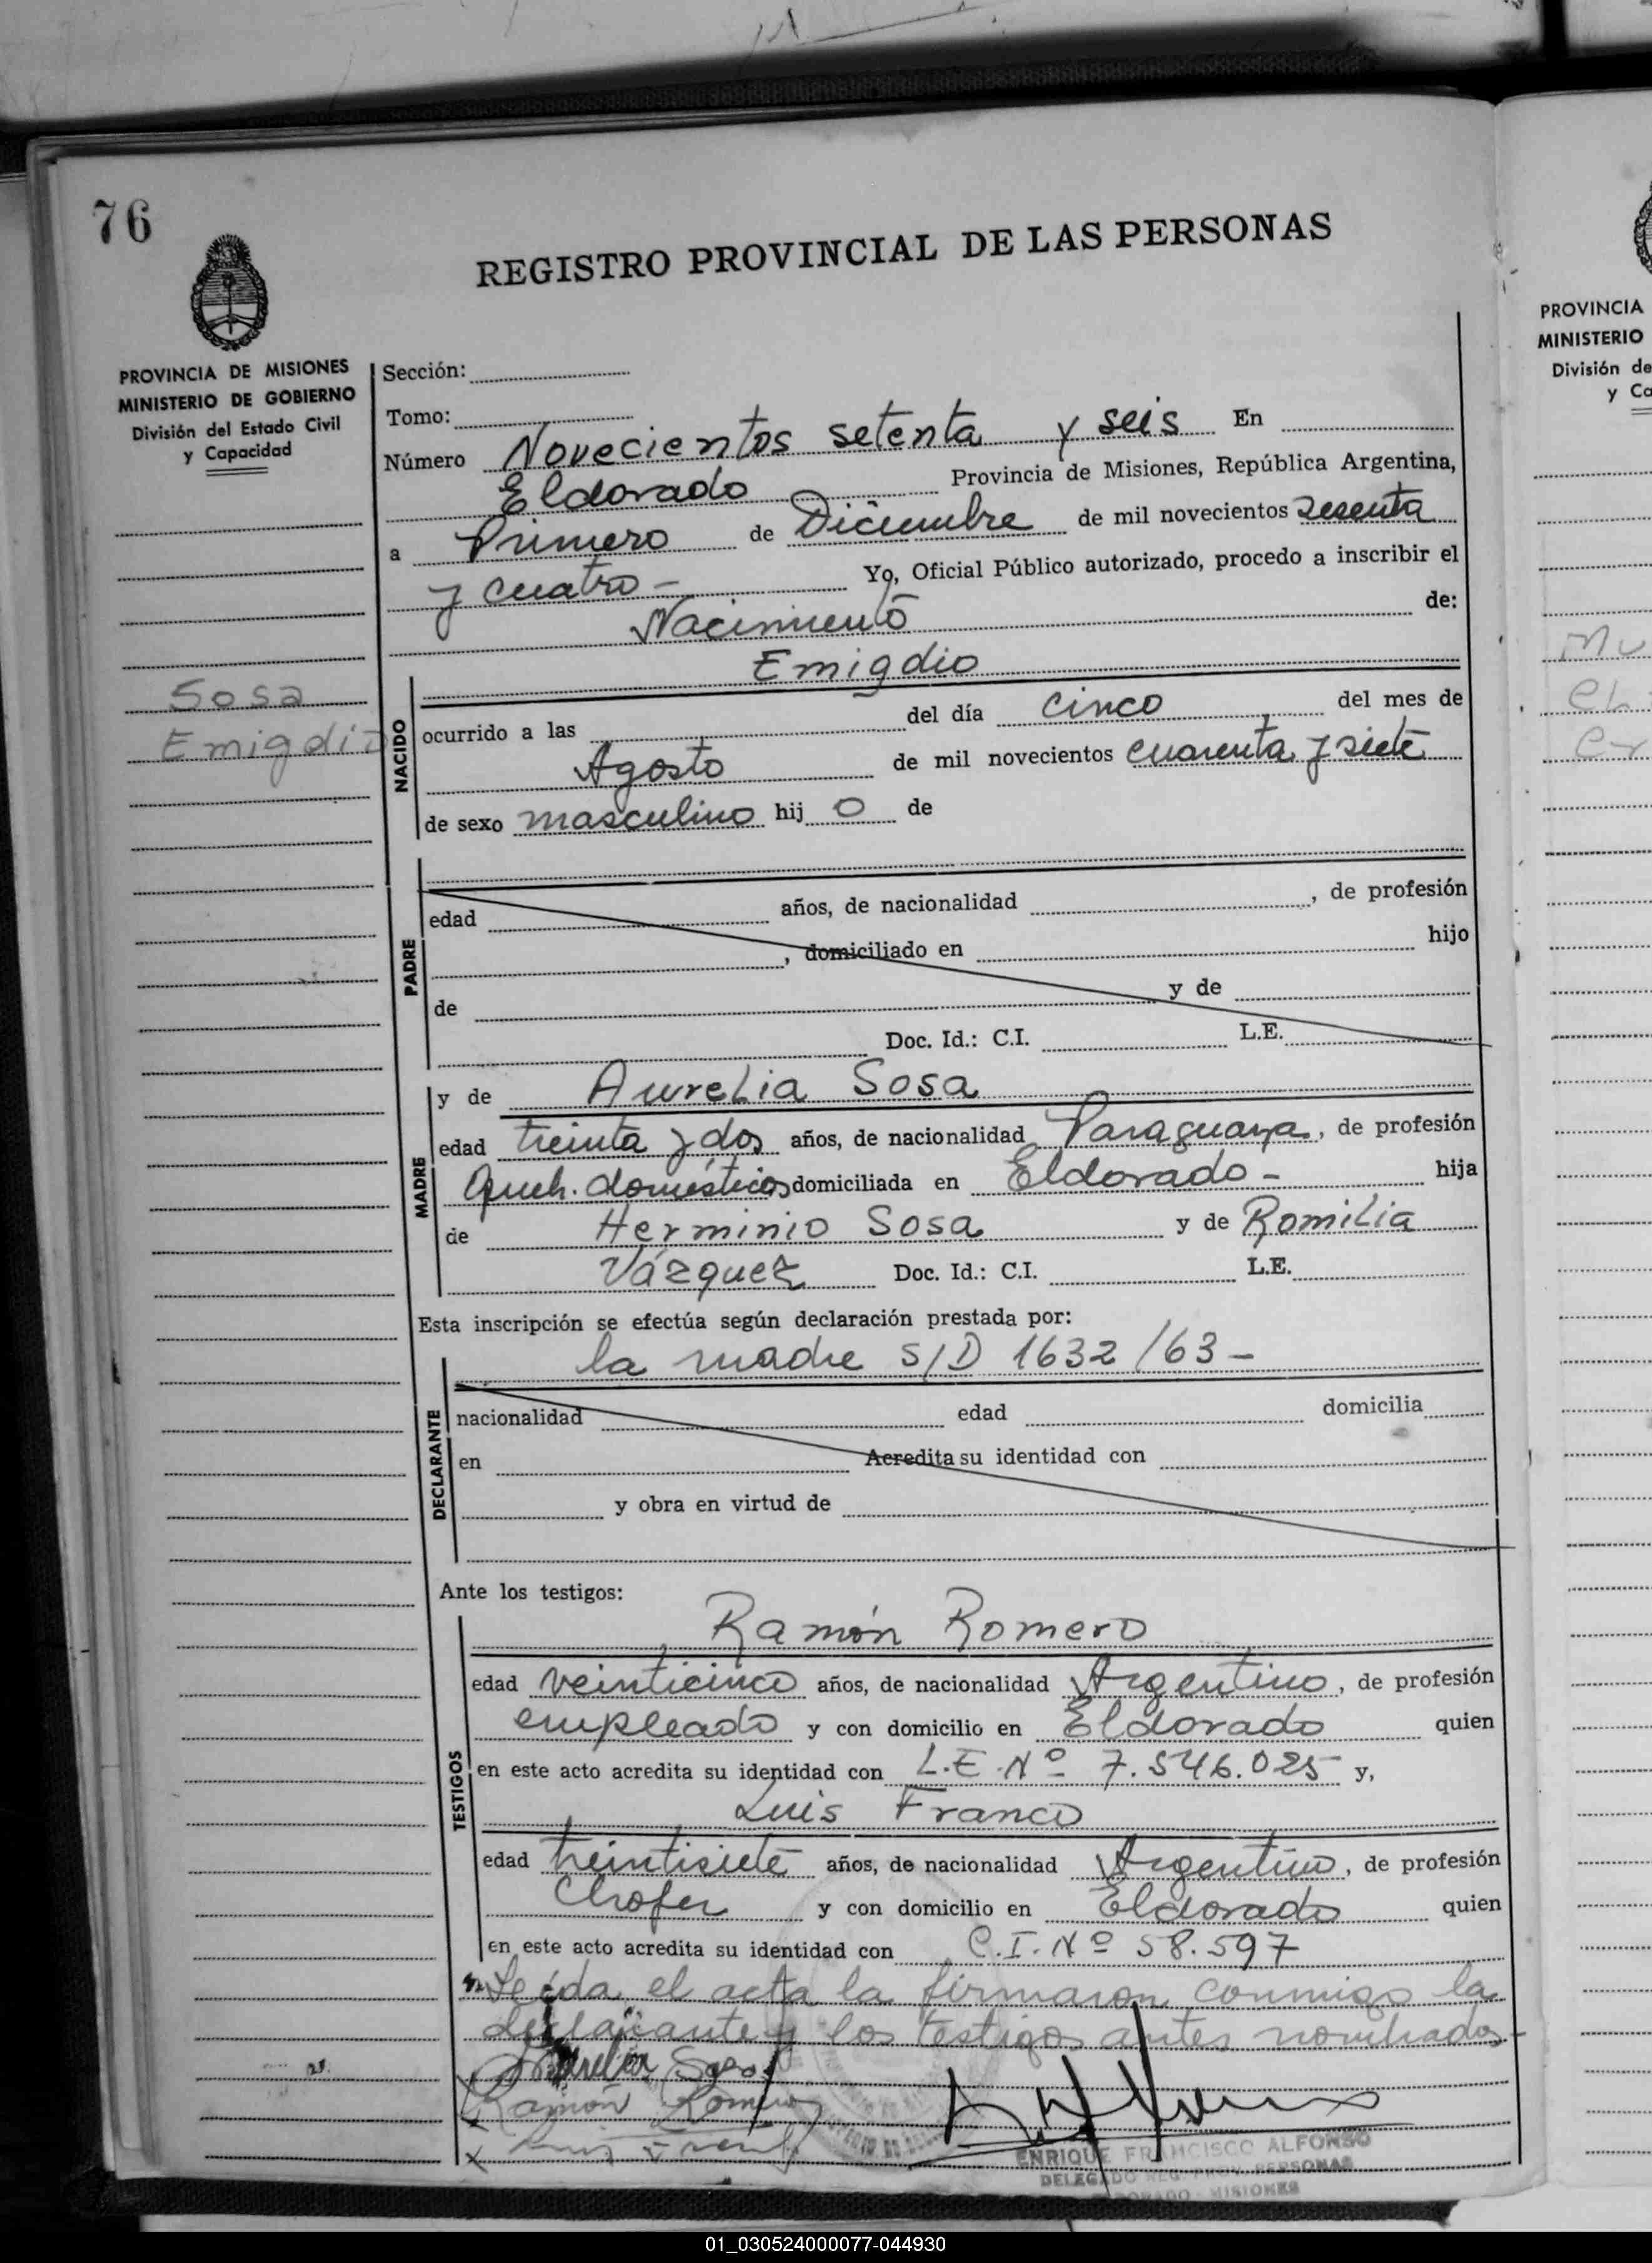 76
REGISTRO PROVINCIAL DE LAS PERSONAS
PROVINCIA DE MISIONES
MINISTERIO DE GOBIERNO
División del Estado Civil
y Capacidad
Sosa
Emigdio
Sección:
Tomo:
Número Novecientos setenta y seis En
Eldorado Provincia de Misiones, República Argentina,
a Primero de Diciembre de mil novecientos sesenta
y cuatro - Yo, Oficial Público autorizado, procedo a inscribir el
Nacimiento de:
Emigdio
NACIDO
ocurrido a las del día cinco del mes de
Agosto de mil novecientos cuarenta y siete
de sexo masculino hij o de
PADRE
edad años, de nacionalidad , de profesión
, domiciliado en hijo
de y de
Doc. Id.: C.I. L.E.
MADRE
y de Aurelia Sosa
edad treinta y dos años, de nacionalidad Paraguaya, de profesión
Queh. domésticos domiciliada en Eldorado - hija
de Herminio Sosa y de Romilia
Vázquez Doc. Id.: C.I. L.E.
Esta inscripción se efectúa según declaración prestada por:
la madre S/D 1632/63 -
DECLARANTE
nacionalidad edad domicilia
en Acredita su identidad con
y obra en virtud de
Ante los testigos:
TESTIGOS
Ramón Romero
edad veinticinco años, de nacionalidad Argentino, de profesión
empleado y con domicilio en Eldorado quien
en este acto acredita su identidad con L.E. Nº 7.546.025 y,
Luis Franco
edad treintisiete años, de nacionalidad Argentino, de profesión
Chofer y con domicilio en Eldorado quien
en este acto acredita su identidad con C.I. Nº 58.597
Leída el acta la firmaron conmigo la
declarante y los testigos antes nombrados -
Aurelia Sosa
x Ramón Romero
x Luis Franco
ENRIQUE FRANCISCO ALFONSO
DELEGADO REG. PROV. PERSONAS
ELDORADO - MISIONES
PROVINCIA
MINISTERIO
División de
y Ca
01_030524000077-044930